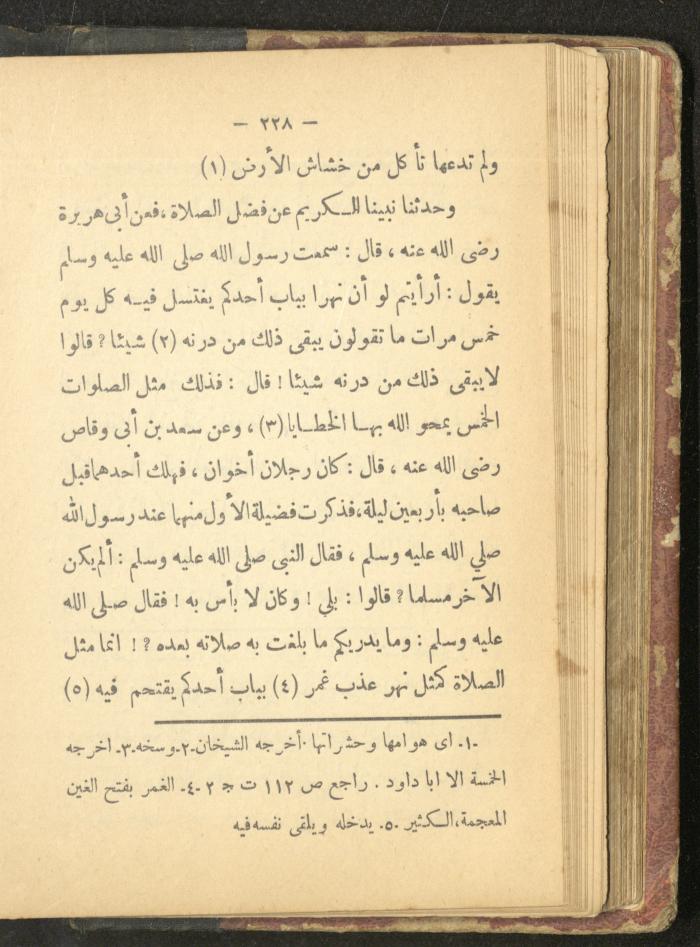 — ٢٢٨ —
ولم تدعها تأكل من خشاش الأرض (١)
وحدثنا نبينا الكريم عن فضل الصلاة ، فعن أبى هريرة
رضى الله عنه ، قال : سمعت رسول الله صلى الله عليه وسلم
يقول : أرأيتم لو أن نهرا بباب أحدكم يغتسل فيه كل يوم
خمس مرات ما تقولون يبقى ذلك من درنه (٢) شيئا ? قالوا
لا يبقى ذلك من درنه شيئا ! قال : فذلك مثل الصلوات
الخمس يمحو الله بها الخطايا (٣) ، وعن سعد بن أبى وقاص
رضى الله عنه ، قال : كان رجلان أخوان ، فهلك أحدهما قبل
صاحبه بأربعين ليلة ، فذكرت فضيلة الأول منهما عند رسول الله
صلي الله عليه وسلم ، فقال النبى صلى الله عليه وسلم : ألم يكن
الآخر مسلما ? قالوا : بلي ! وكان لا بأس به ! فقال صلى الله
عليه وسلم : وما يدريكم ما بلغت به صلاته بعده ? ! انما مثل
الصلاة كمثل نهر عذب غمر (٤) بباب أحدكم يقتحم فيه (٥)
-١- اى هوامها وحشراتها . أخرجه الشيخان -٢- وسخه -٣- اخرجه
الخمسة الا ابا داود . راجع ص ١١٢ ت ج ٢ -٤- الغمر بفتح الغين
المعجمة ، الكثير -٥- يدخله ويلقى نفسه فيه